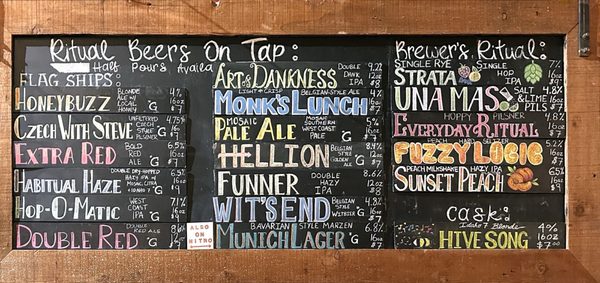 Ritual Beers On Tap:
Half Pours Availa
FLAG SHIPS:
HONEYBUZZ BLONDE ALE W/ LOCAL HONEY G 4% 16oz
CZECH WITH STEVE UNFILTERED CZECH STYLE PILSNER G 4.75% 16oz
EXTRA RED BOLD RED ALE G 6.5% 16oz $7
HABITUAL HAZE DOUBLE DRY-HOPPED HAZY IPA MOSAIC, CITRA + IDAHO 7 6.5% 16oz
HOP-O-MATIC WEST COAST IPA G 7.1% 16oz
DOUBLE RED DOUBLE RED ALE G
ALSO ON NITRO
ART & DANKNESS DOUBLE DANK IPA 9.2% 12oz $8
MONK'S LUNCH LIGHT + CRISP BELGIAN-STYLE ALE 4% 16oz
PALE ALE MOSAIC MOSAIC SOUTHERN WEST COAST PALE 5% 16oz $7
HELLION BELGIAN STYLE GOLDEN ALE G 8.4% 12oz
FUNNER DOUBLE HAZY IPA 8.6% 12oz $8
WIT'S END BELGIAN STYLE WITBIER G 4.8% 16oz
MUNICH LAGER BAVARIAN STYLE MARZEN G 6.8% 16oz
Brewer's Ritual:
STRATA SINGLE RYE SINGLE HOP IPA 7% 16oz
UNA MAS SALT & LIME 4.8% 16oz
EVERYDAY RITUAL HOPPY PILSNER 4.8% 16oz $7
FUZZY LOGIC PEACH HARD SELTZER 5.2% 16oz $7
SUNSET PEACH PEACH MILKSHAKE HAZY IPA 6.5% 16oz
CASK:
HIVE SONG Idaho 7 Blonde 4% 16oz $7.00